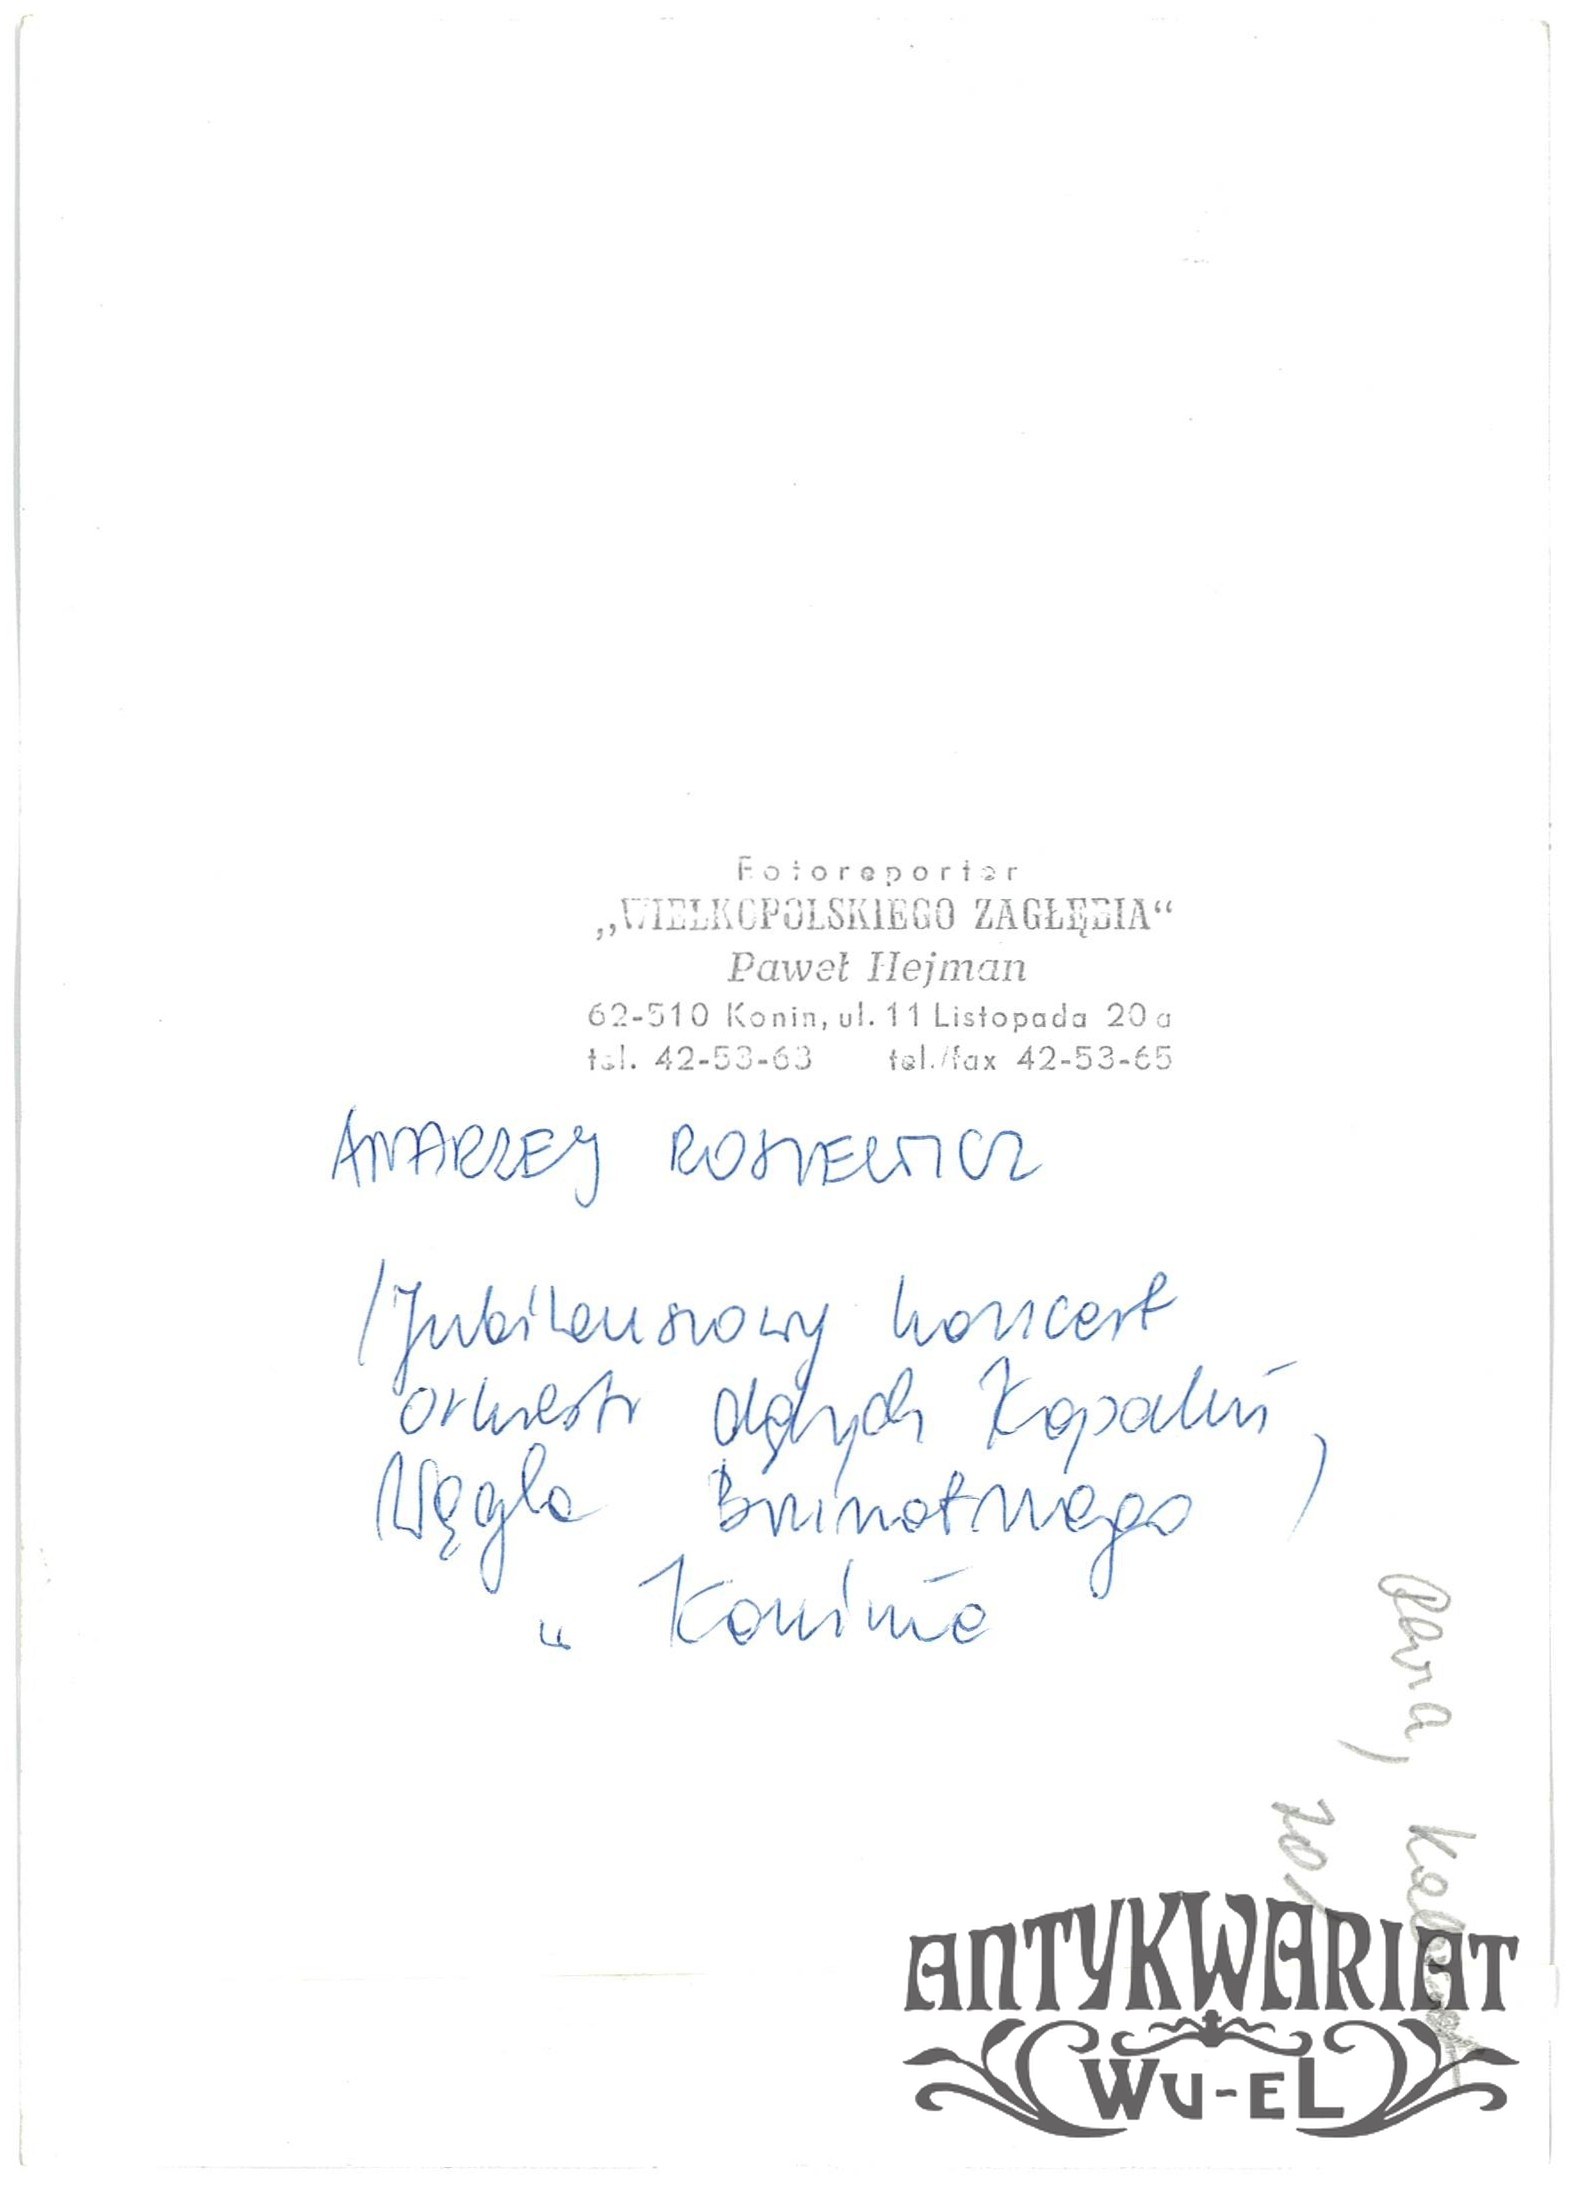 Fotoreporter
„WIELKOPOLSKIEGO ZAGŁĘBIA“
Paweł Hejman
62-510 Konin, ul. 11 Listopada 20 a
tel. 42-53-63 tel./fax 42-53-65
ANDRZEJ ROSIEWICZ
/Jubileuszowy koncert
orkiestr dętych Kopalni
Węgla Brunatnego /
w Koninie
ANTYKWARIAT
WU-EL